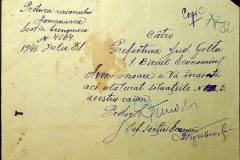 Pretura raionului
Domaniovca
Secția Economică
N. 4604
1943 Iulie 21
Copie
Către
Prefectura Jud. Golta
1. Biroul Economic
Avem onoare a Vă înainta
aci alăturat situațiile
acestui raion.
Pretor
Șef Secției Econom.